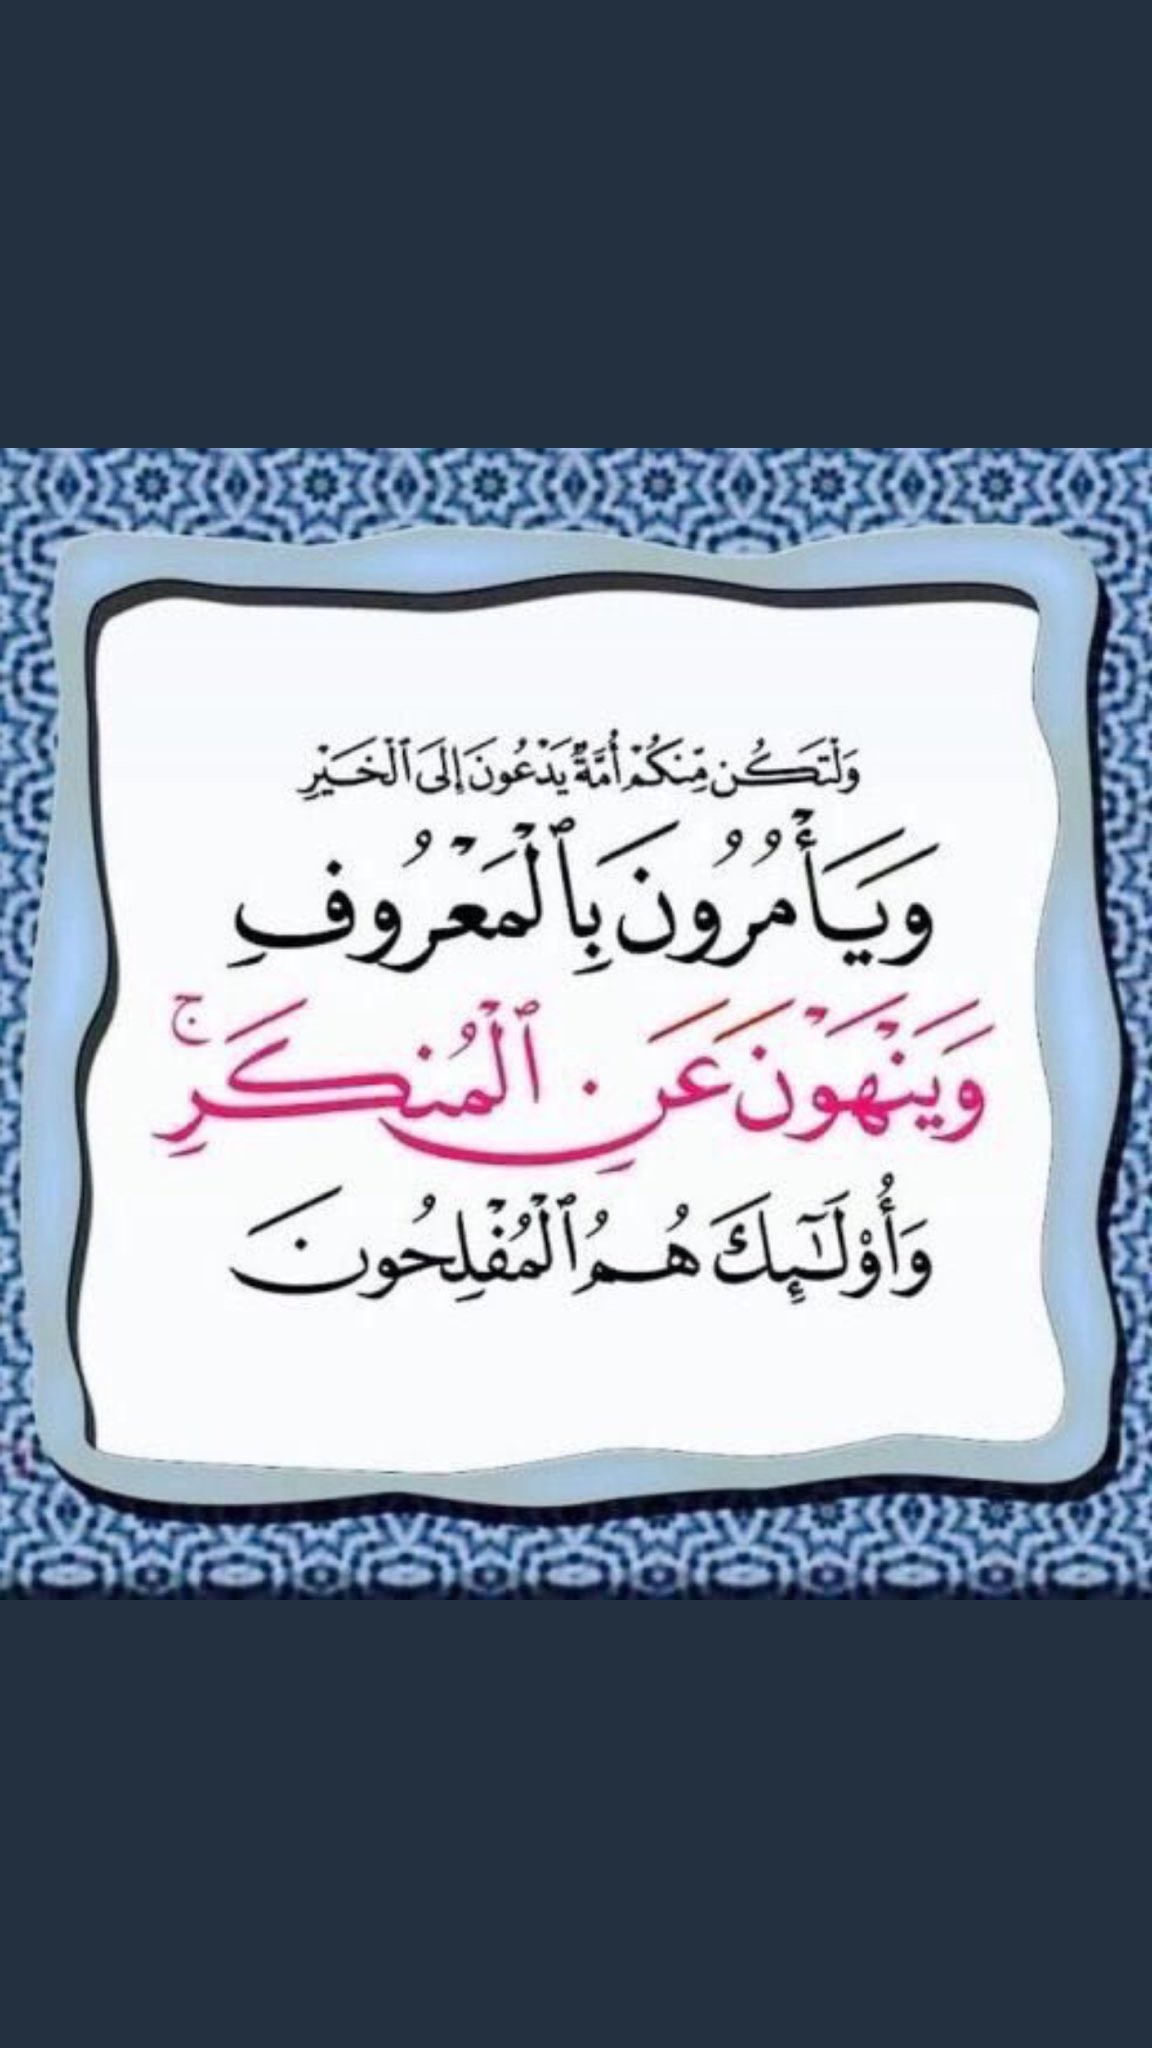 وَلْتَكُن مِّنكُمْ أُمَّةٌ يَدْعُونَ إِلَى ٱلْخَيْرِ
وَيَأْمُرُونَ بِٱلْمَعْرُوفِ
وَيَنْهَوْنَ عَنِ ٱلْمُنكَرِ ۚ
وَأُو۟لَـٰٓئِكَ هُمُ ٱلْمُفْلِحُونَ